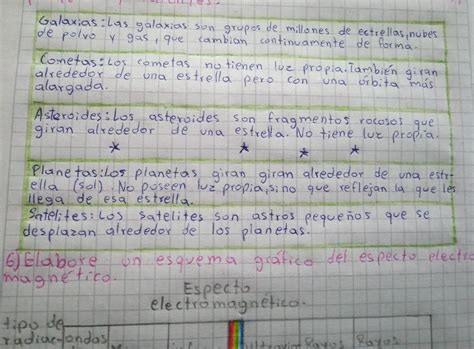 Galaxias: Las galaxias son grupos de millones de estrellas, nubes
de polvo y gas, que cambian continuamente de forma.
Cometas: Los cometas no tienen luz propia. También giran
alrededor de una estrella pero con una órbita más
alargada.
Asteroides: Los asteroides son fragmentos rocosos que
giran alrededor de una estrella. No tiene luz propia.
Planetas: Los planetas giran giran alrededor de una estr-
ella (sol). No poseen luz propia, sino que reflejan la que les
llega de esa estrella.
Satelites: Los satelites son astros pequeños que se
desplazan alrededor de los planetas.
6) Elabore un esquema gráfico del especto electro
magnético.
Especto
electromagnético.
tipo de
radiac- ondas Rayos Rayos